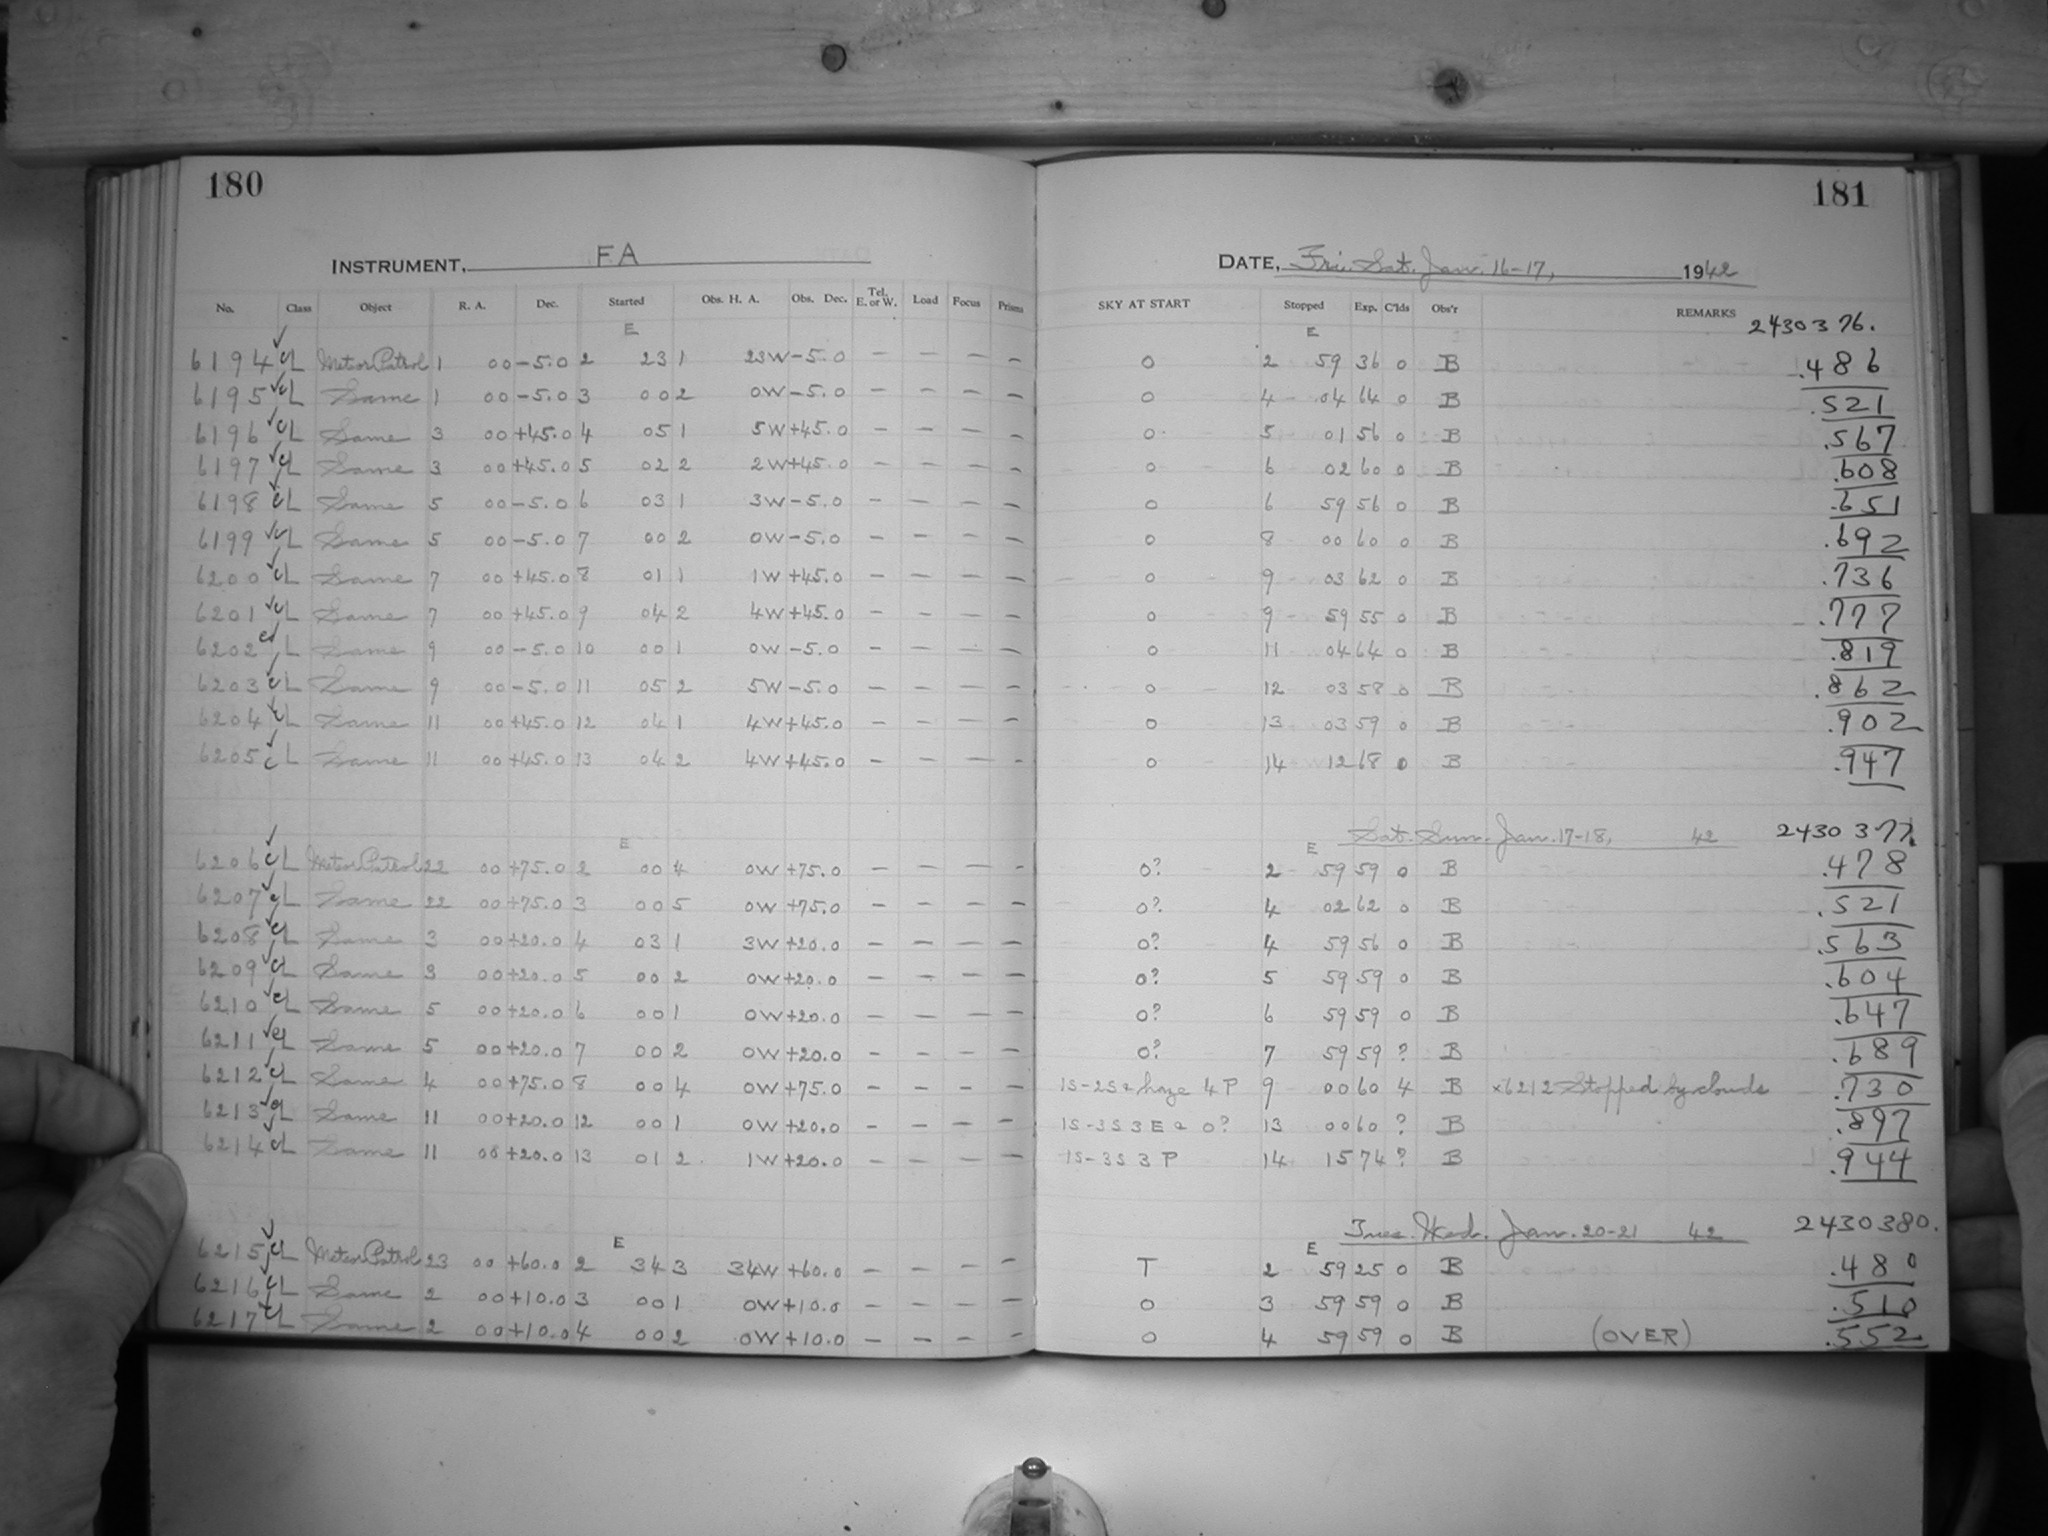 180
181
INSTRUMENT, FA
DATE, Fri. Sat. Jan. 16-17, 1942
No. Class Object R. A. Dec. Started Obs. H. A. Obs. Dec. Tel. E. or W. Load Focus Prisms SKY AT START Stopped Exp. C'lds Obs'r REMARKS
E E 2430376.
6194 cL Meteor Patrol 1 00 -5.0 2 23 1 23W -5.0 — — — — 0 2 59 36 0 B .486
6195 cL Same 1 00 -5.0 3 00 2 0W -5.0 — — — — 0 4 04 64 0 B .521
6196 cL Same 3 00 +45.0 4 05 1 5W +45.0 — — — — 0 5 01 56 0 B .567
6197 cL Same 3 00 +45.0 5 02 2 2W +45.0 — — — — 0 6 02 60 0 B .608
6198 cL Same 5 00 -5.0 6 03 1 3W -5.0 — — — — 0 6 59 56 0 B .651
6199 cL Same 5 00 -5.0 7 00 2 0W -5.0 — — — — 0 8 00 60 0 B .692
6200 cL Same 7 00 +45.0 8 01 1 1W +45.0 — — — — 0 9 03 62 0 B .736
6201 cL Same 7 00 +45.0 9 04 2 4W +45.0 — — — — 0 9 59 55 0 B .777
6202 cL Same 9 00 -5.0 10 00 1 0W -5.0 — — — — 0 11 04 64 0 B .819
6203 cL Same 9 00 -5.0 11 05 2 5W -5.0 — — — — 0 12 03 58 0 B .862
6204 cL Same 11 00 +45.0 12 04 1 4W +45.0 — — — — 0 13 03 59 0 B .902
6205 cL Same 11 00 +45.0 13 04 2 4W +45.0 — — — — 0 14 12 68 0 B .947
E E Sat. Sun. Jan. 17-18, 42 2430377.
6206 cL Meteor Patrol 22 00 +75.0 2 00 4 0W +75.0 — — — — 0? 2 59 59 0 B .478
6207 cL Same 22 00 +75.0 3 00 5 0W +75.0 — — — — 0? 4 02 62 0 B .521
6208 cL Same 3 00 +20.0 4 03 1 3W +20.0 — — — — 0? 4 59 56 0 B .563
6209 cL Same 3 00 +20.0 5 00 2 0W +20.0 — — — — 0? 5 59 59 0 B .604
6210 cL Same 5 00 +20.0 6 00 1 0W +20.0 — — — — 0? 6 59 59 0 B .647
6211 cL Same 5 00 +20.0 7 00 2 0W +20.0 — — — — 0? 7 59 59 ? B .689
6212 cL Same 4 00 +75.0 8 00 4 0W +75.0 — — — — 1S-2S & haze 4 P 9 00 60 4 B ×6212 Stopped by clouds .730
6213 cL Same 11 00 +20.0 12 00 1 0W +20.0 — — — — 1S-3S 3 E & 0? 13 00 60 ? B .897
6214 cL Same 11 00 +20.0 13 01 2 1W +20.0 — — — — 1S-3S 3 P 14 15 74 ? B .944
E E Tues. Wed. Jan. 20-21 42 2430380.
6215 cL Meteor Patrol 23 00 +60.0 2 34 3 34W +60.0 — — — — T 2 59 25 0 B .480
6216 cL Same 2 00 +10.0 3 00 1 0W +10.0 — — — — 0 3 59 59 0 B .510
6217 cL Same 2 00 +10.0 4 00 2 0W +10.0 — — — — 0 4 59 59 0 B (OVER) .552